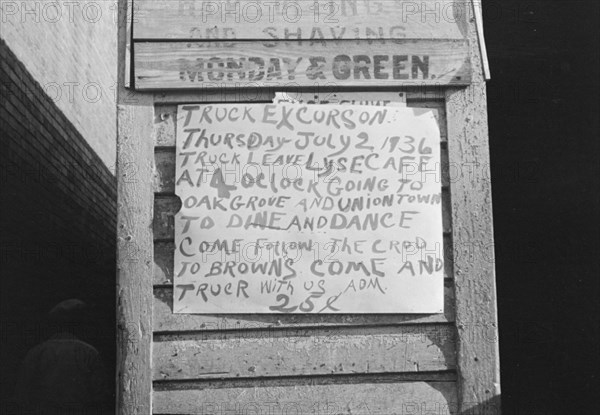 AND SHAVING
MONDAY & GREEN.
TRUCK EXCURSON.
THURSDAY JULY 2, 1936
TRUCK LEAVE LYSE CAFE
AT 4 OCLOCK GOING TO
OAK GROVE AND UNION TOWN
TO DINE AND DANCE
COME FOLLOW THE CROD
TO BROWNS COME AND
TRUCR WITH US ADM.
25¢